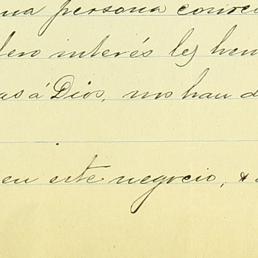 una persona
dero interés les hem
as á Dios, nos han d
en este negocio, &